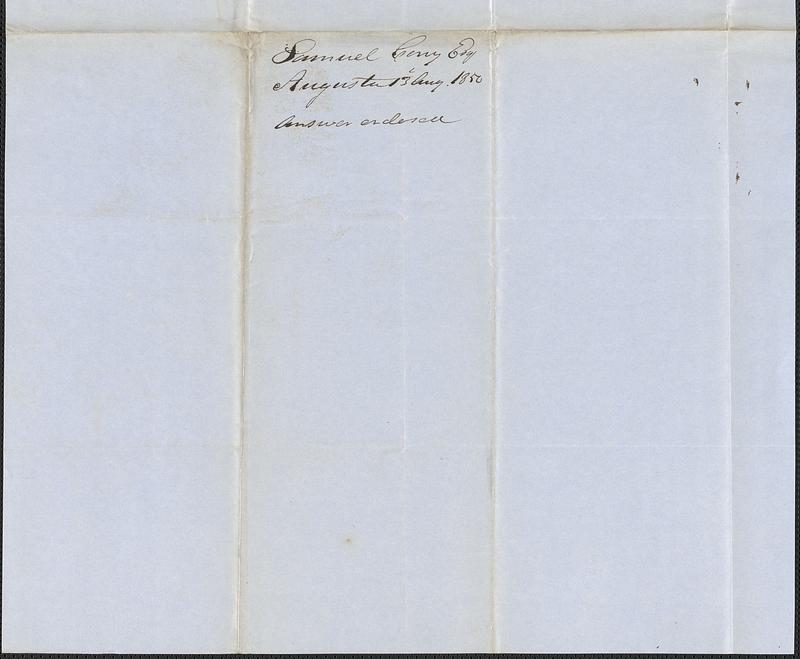 Samuel Cony Esq
Augusta 13 Aug. 1850
Answer endorsed